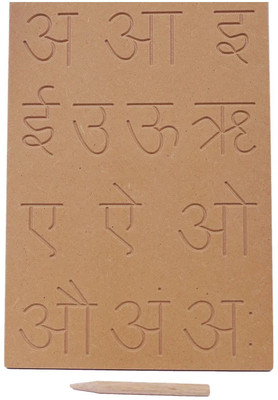 अ आ इ
ई उ ऊ ऋ
ए ऐ ओ
औ अं अः